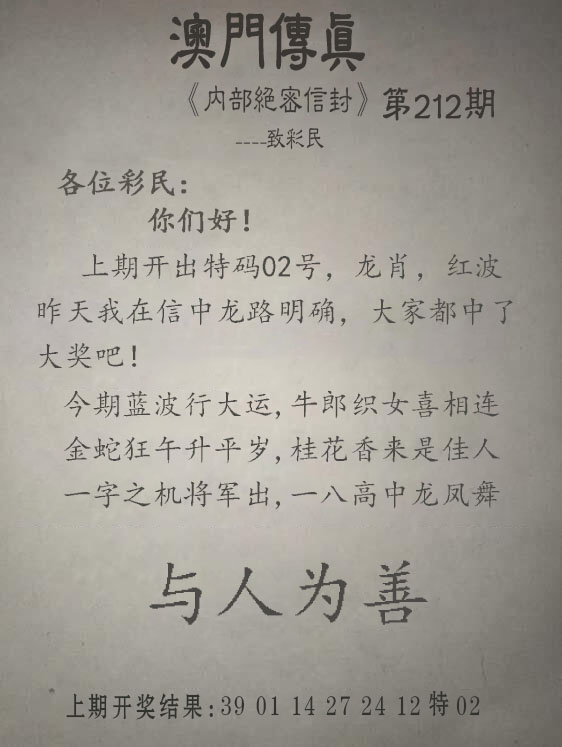 澳門傳真
《内部絕密信封》第212期
----致彩民
各位彩民：
你们好！
上期开出特码02号，龙肖，红波
昨天我在信中龙路明确，大家都中了
大奖吧！
今期蓝波行大运,牛郎织女喜相连
金蛇狂午升平岁,桂花香来是佳人
一字之机将军出,一八高中龙凤舞
与人为善
上期开奖结果:39 01 14 27 24 12 特 02